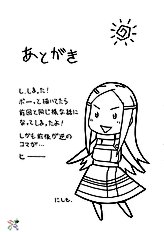 あとがき
し、しまった!
ボーっと描いてたら
前回と同じ様な話に
なってしまったよ!
しかも前後が逆の
コマが…
ヒー
にしも。